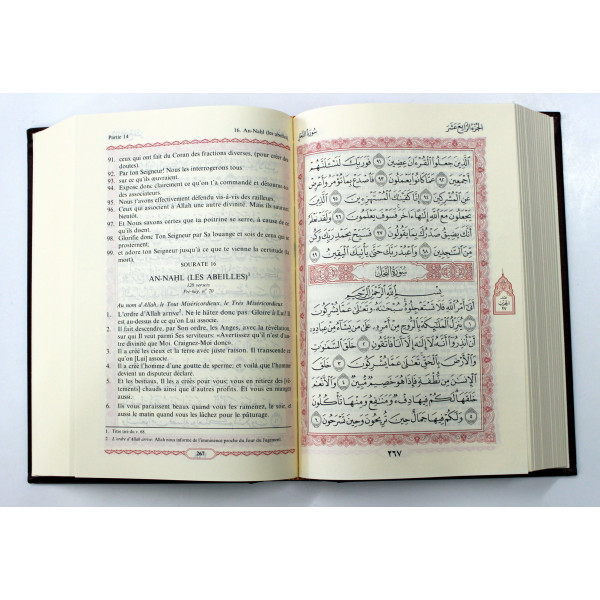 Partie 14
16. An-Nahl (les abeilles)
91. ceux qui ont fait du Coran des fractions diverses, (pour créer des
doutes).
92. Par ton Seigneur! Nous les interrogerons tous
93. sur ce qu'ils œuvraient.
94. Expose donc clairement ce qu'on t'a commandé et détourne-toi
des associateurs.
95. Nous t'avons effectivement défendu vis-à-vis des railleurs.
96. Ceux qui associent à Allah une autre divinité. Mais ils sauront
bientôt.
97. Et Nous savons certes que ta poitrine se serre, à cause de ce
qu'ils disent.
98. Glorifie donc Ton Seigneur par Sa louange et sois de ceux qui se
prosternent;
99. et adore ton Seigneur jusqu'à ce que te vienne la certitude (la
mort).
SOURATE 16
AN-NAHL (LES ABEILLES)¹
128 versets
Pré-hég. n° 70
Au nom d'Allah, le Tout Miséricordieux, le Très Miséricordieux
1. L'ordre d'Allah arrive². Ne le hâtez donc pas. Gloire à Lui! Il
est au-dessus de ce qu'on Lui associe.
2. Il fait descendre, par Son ordre, les Anges, avec la révélation,
sur qui Il veut parmi Ses serviteurs: «Avertissez qu'il n'est d'au-
tre divinité que Moi. Craignez-Moi donc».
3. Il a créé les cieux et la terre avec juste raison. Il transcende ce
qu'on [Lui] associe.
4. Il a créé l'homme d'une goutte de sperme; et voilà que l'homme
devient un disputeur déclaré.
5. Et les bestiaux, Il les a créés pour vous; vous en retirez des [vê-
tements] chauds ainsi que d'autres profits. Et vous en mangez
aussi.
6. Ils vous paraissent beaux quand vous les ramenez, le soir, et
aussi le matin quand vous les lâchez pour le pâturage.
1. Titre tiré du v. 68.
2. L'ordre d'Allah arrive: Allah nous informe de l'imminence proche du Jour du Jugement.
267
سُورَةُ النَّحل
الجُزءُ الرَّابِعَ عَشَرَ
الَّذِينَ جَعَلُوا الْقُرْءَانَ عِضِينَ ٩١ فَوَرَبِّكَ لَنَسْـَٔلَنَّهُمْ
أَجْمَعِينَ ٩٢ عَمَّا كَانُوا يَعْمَلُونَ ٩٣ فَاصْدَعْ بِمَا تُؤْمَرُ وَأَعْرِضْ
عَنِ الْمُشْرِكِينَ ٩٤ إِنَّا كَفَيْنَاكَ الْمُسْتَهْزِءِينَ ٩٥ الَّذِينَ
يَجْعَلُونَ مَعَ اللَّهِ إِلَٰهًا ءَاخَرَ فَسَوْفَ يَعْلَمُونَ ٩٦ وَلَقَدْ نَعْلَمُ
أَنَّكَ يَضِيقُ صَدْرُكَ بِمَا يَقُولُونَ ٩٧ فَسَبِّحْ بِحَمْدِ رَبِّكَ وَكُن
مِّنَ السَّاجِدِينَ ٩٨ وَاعْبُدْ رَبَّكَ حَتَّىٰ يَأْتِيَكَ الْيَقِينُ ٩٩
سُورَةُ النَّحْلِ
بِسْمِ اللَّهِ الرَّحْمَٰنِ الرَّحِيمِ
أَتَىٰ أَمْرُ اللَّهِ فَلَا تَسْتَعْجِلُوهُ سُبْحَٰنَهُ وَتَعَٰلَىٰ عَمَّا يُشْرِكُونَ
١ يُنَزِّلُ الْمَلَٰئِكَةَ بِالرُّوحِ مِنْ أَمْرِهِ عَلَىٰ مَن يَشَاءُ مِنْ عِبَادِهِ
أَنْ أَنذِرُوا أَنَّهُ لَا إِلَٰهَ إِلَّا أَنَا فَاتَّقُونِ ٢ خَلَقَ السَّمَٰوَٰتِ
وَالْأَرْضَ بِالْحَقِّ تَعَٰلَىٰ عَمَّا يُشْرِكُونَ ٣ خَلَقَ
الْإِنسَٰنَ مِن نُّطْفَةٍ فَإِذَا هُوَ خَصِيمٌ مُّبِينٌ ٤ وَالْأَنْعَٰمَ
خَلَقَهَا لَكُمْ فِيهَا دِفْءٌ وَمَنَٰفِعُ وَمِنْهَا تَأْكُلُونَ
٥ وَلَكُمْ فِيهَا جَمَالٌ حِينَ تُرِيحُونَ وَحِينَ تَسْرَحُونَ ٦
٢٦٧